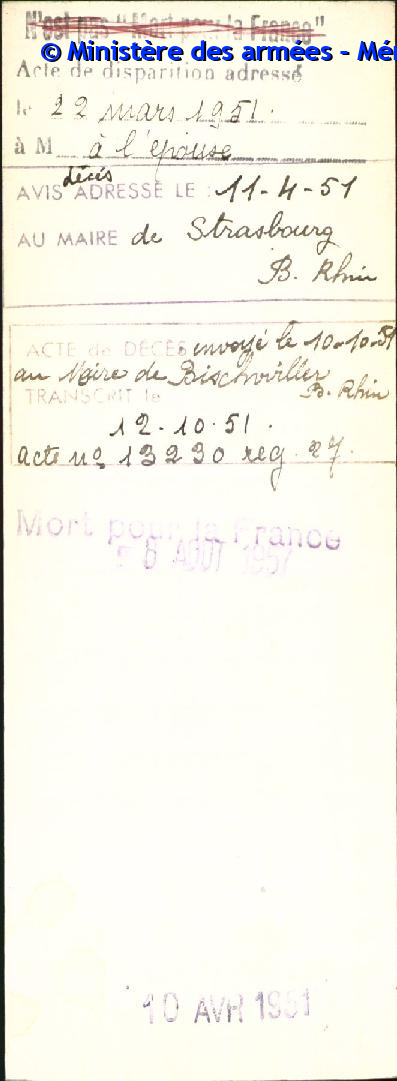 N'est pas "Mort pour la France"
© Ministère des armées - Mé
Acte de disparition adressé
le 22 mars 1951.
à M à l'épouse
décès
AVIS ADRESSÉ LE : 11-4-51
AU MAIRE de Strasbourg
B. Rhin
ACTE de DÉCÈS envoyé le 10-10-51
au Maire de Bischwiller
TRANSCRIT le B. Rhin
12.10.51.
acte no 13230 reg. 27.
Mort pour la France
8 AOUT 1957
10 AVR 1951